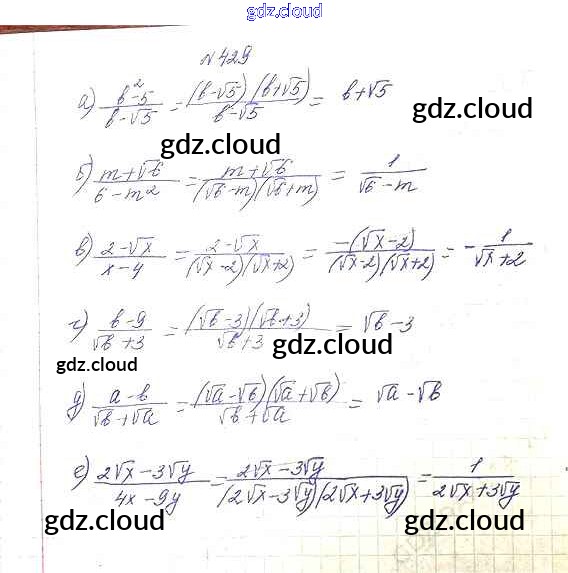 gdz.cloud
№429
а) (b²-5)/(b-√5) = ((b-√5)(b+√5))/(b-√5) = b+√5
gdz.cloud
б) (m+√6)/(6-m²) = (m+√6)/((√6-m)(√6+m)) = 1/(√6-m)
gdz.cloud
в) (2-√x)/(x-4) = (2-√x)/((√x-2)(√x+2)) = (-(√x-2))/((√x-2)(√x+2)) = -1/(√x+2)
г) (b-9)/(√b+3) = ((√b-3)(√b+3))/(√b+3) = √b-3
gdz.cloud gdz.cloud
д) (a-b)/(√b+√a) = ((√a-√b)(√a+√b))/(√b+√a) = √a-√b
е) (2√x-3√y)/(4x-9y) = (2√x-3√y)/((2√x-3√y)(2√x+3√y)) = 1/(2√x+3√y)
gdz.cloud gdz.cloud